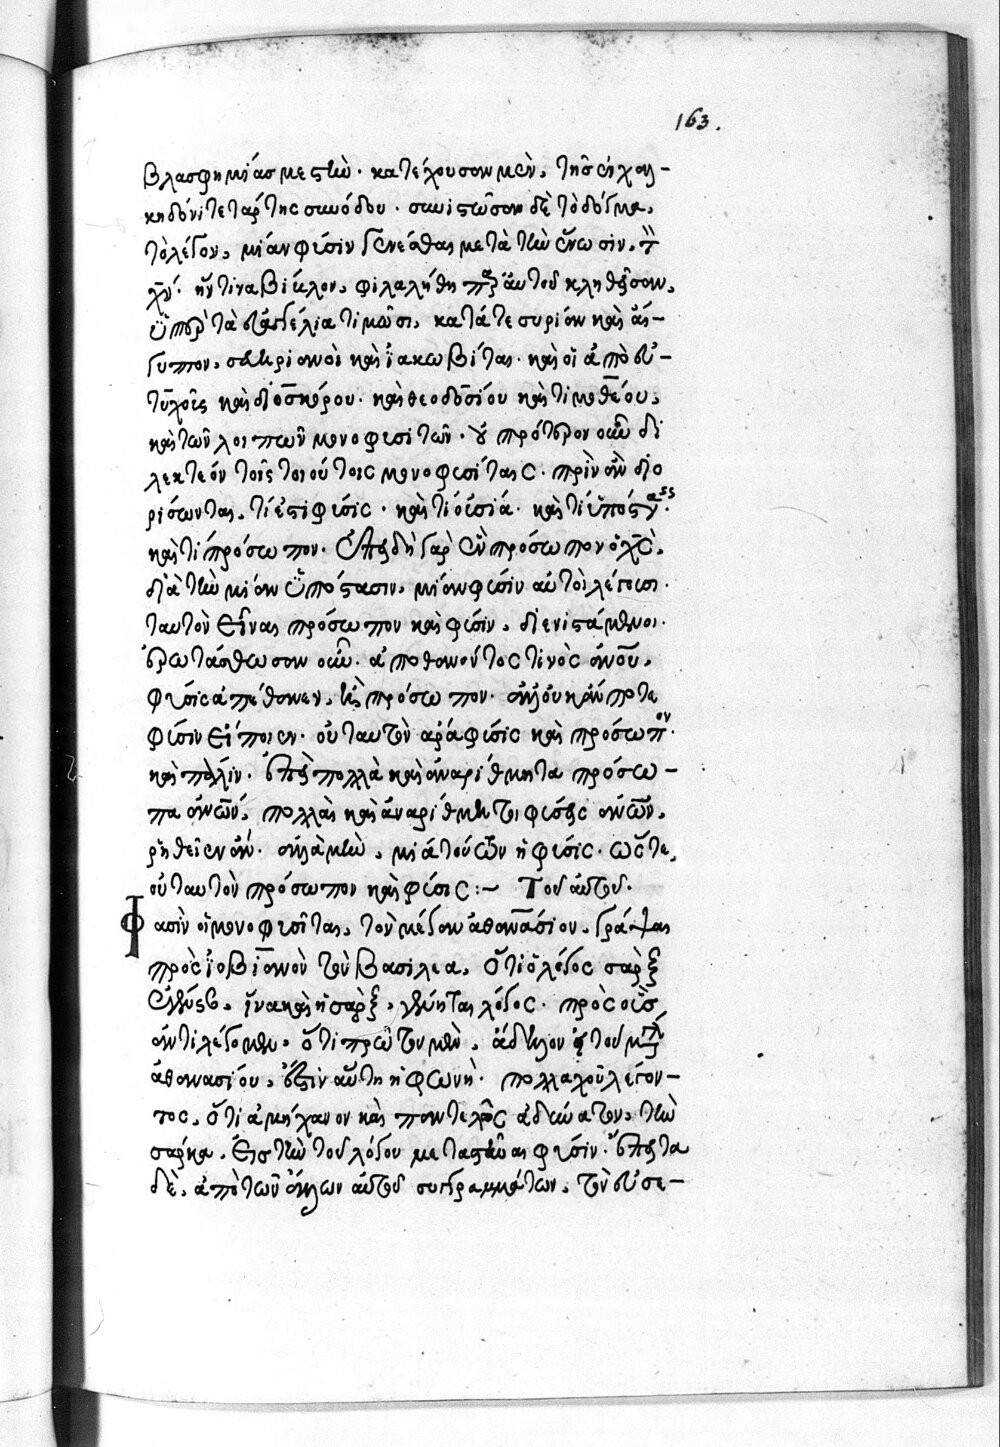 163.
βλασφημίας μεστὴν. κατέχουσαν μὲν, τῆς ἐν χαλ-
κηδόνι τετάρτης συνόδου. συνιστῶσαν δὲ τὸ δόγμα,
τὸ λέγον, μίαν φύσιν γενέσθαι μετὰ τὴν ἕνωσιν, ἐπὶ
χ̅υ̅. ἥντινα βίβλον, φιλαλήθη παρ' αὐτοῦ κληθεῖσαν,
ὑπὲρ τὰ εὐαγγέλια τιμῶσι, κατά τε συρίαν καὶ αἴ-
γυπτον, σευηριανοὶ καὶ ἰακωβίται. καὶ οἱ ἀπὸ εὐ-
τυχοῦς καὶ διοσκόρου. καὶ θεοδοσίου καὶ τιμοθέου,
καὶ τῶν λοιπῶν μονοφυσιτῶν. πρότερον οὖν δι
λεκτέον τοῖς τοιούτοις μονοφυσίταις. πρὶν ἂν διο
ρίσωνται, τί ἐστι φύσις. καὶ τί οὐσία. καὶ τί ὑπόστασις.
καὶ τί πρόσωπον. ἐπειδὴ γὰρ ἓν πρόσωπον ὁ χ̅ς̅,
διὰ τὴν μίαν ὑπόστασιν, μίαν φύσιν αὐτοὶ λέγουσι.
ταυτὸν εἶναι πρόσωπον καὶ φύσιν, διενιστάμενοι.
ἐρωτάσθωσαν οὖν. ἀποθανόντος τινὸς ἀν̅ο̅υ̅,
φύσις ἀπέθανεν, ἢ πρόσωπον. ἀλλ' οὐκ ἄν ποτε
φύσιν εἴποιεν. οὐ ταυτὸν ἄρα φύσις καὶ πρόσωπον.
καὶ πάλιν. ἐπεὶ πολλὰ καὶ ἀναρίθμητα πρόσω-
πα ἀν̅ω̅ν̅, πολλαὶ καὶ ἀναρίθμητοι φύσεις ἀν̅ω̅ν̅,
ῥηθεῖεν ἄν. ἀλλὰ μὴν, μία τούτων ἡ φύσις. ὥστε,
οὐ ταυτὸν πρόσωπον καὶ φύσις:- Τοῦ αὐτοῦ.
Φασὶν οἱ μονοφυσῖται, τὸν μέγαν ἀθανάσιον, γράψαι
πρὸς ἰοβιανὸν τὸν βασιλέα, ὅτι ὁ λόγος σὰρξ
ἐγένετο, ἵνα καὶ ἡ σὰρξ, γένηται λόγος. πρὸς οὓς
ἀντιλέγομεν, ὅτι πρῶτον μὲν, ἄδηλον εἰ τοῦ μεγάλου
ἀθανασίου, ἐστὶν αὕτη ἡ φωνὴ. πολλαχοῦ λέγον-
τος, ὅτι ἀμήχανον καὶ παντελῶς ἀδύνατον, τὴν
σάρκα, εἰς τὴν τοῦ λόγου μεταστῆναι φύσιν. ἔπειτα
δὲ, ἀπὸ τῶν ἄλλων αὐτοῦ συγγραμμάτων, τὸν εὐσε-